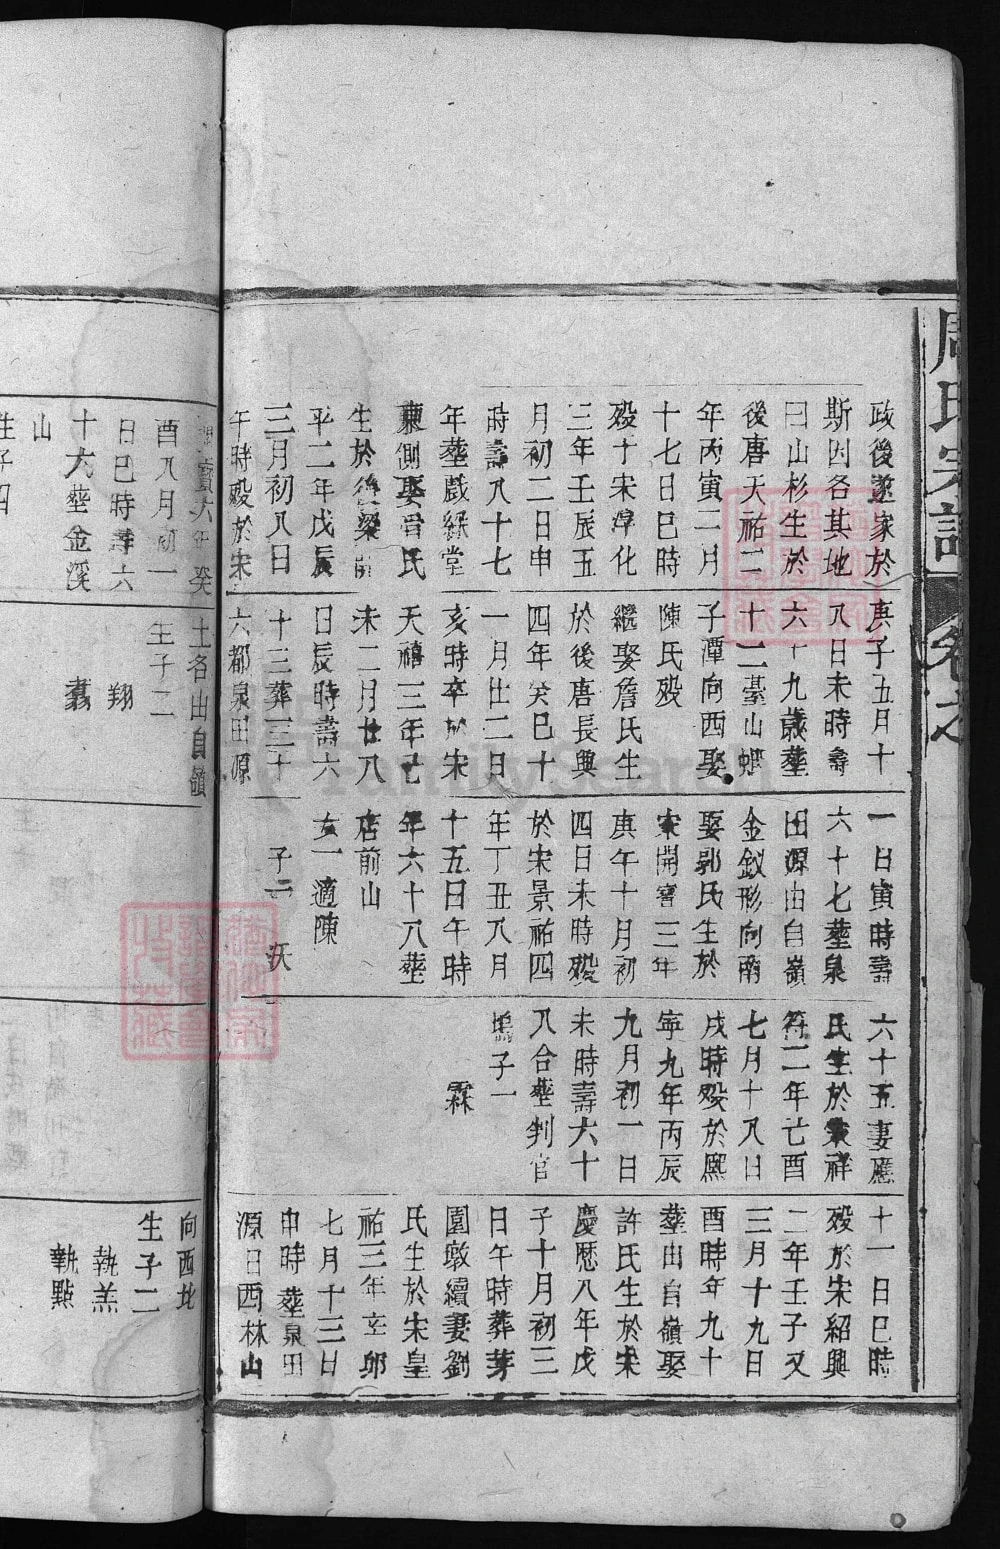 周氏宗譜
政後遂家於
斯因名其地
曰山杉生於
後唐天祐二
年丙寅二月
十七日巳時
殁于宋淳化
三年壬辰五
月初二日申
時壽八十七
年塟戲綠堂
東側娶呂氏
生於後梁
平二年戊辰
三月初八日
午時殁於宋
庚子五月十
八日未時壽
六十九歲塟
十二臺山
子潭向西娶
陳氏殁
繼娶詹氏生
於後唐長興
四年癸巳十
一月廿二日
亥時卒於宋
天禧三年己
未二月廿八
日辰時壽六
十三葬三十
六都泉田源
土名山自嶺
生子二
翔
翥
一日寅時壽
六十七塟泉
田源由自嶺
金釵形向南
娶郭氏生於
宋開寶三年
庚午十月初
四日未時殁
於宋景祐四
年丁丑八月
十五日午時
年六十八塟
店前山
女一適陳
子二
沃
六十五妻應
氏生於宋祥
符二年己酉
七月十八日
戌時殁於熈
寧九年丙辰
九月初一日
未時壽六十
八合塟判官
塢子一
霖
十一日巳時
殁於宋紹興
二年壬子又
三月十九日
酉時年九十
塟由自嶺娶
許氏生於宋
慶歷八年戊
子十月初三
日午時葬芽
園墩續妻劉
氏生於宋皇
祐三年辛卯
七月十三日
申時塟泉田
源日西林山
寶六年癸
酉八月初一
日巳時壽六
十六塟金溪
山
生子四
向西北
生子二
執羔
執㸃
FamilySearch